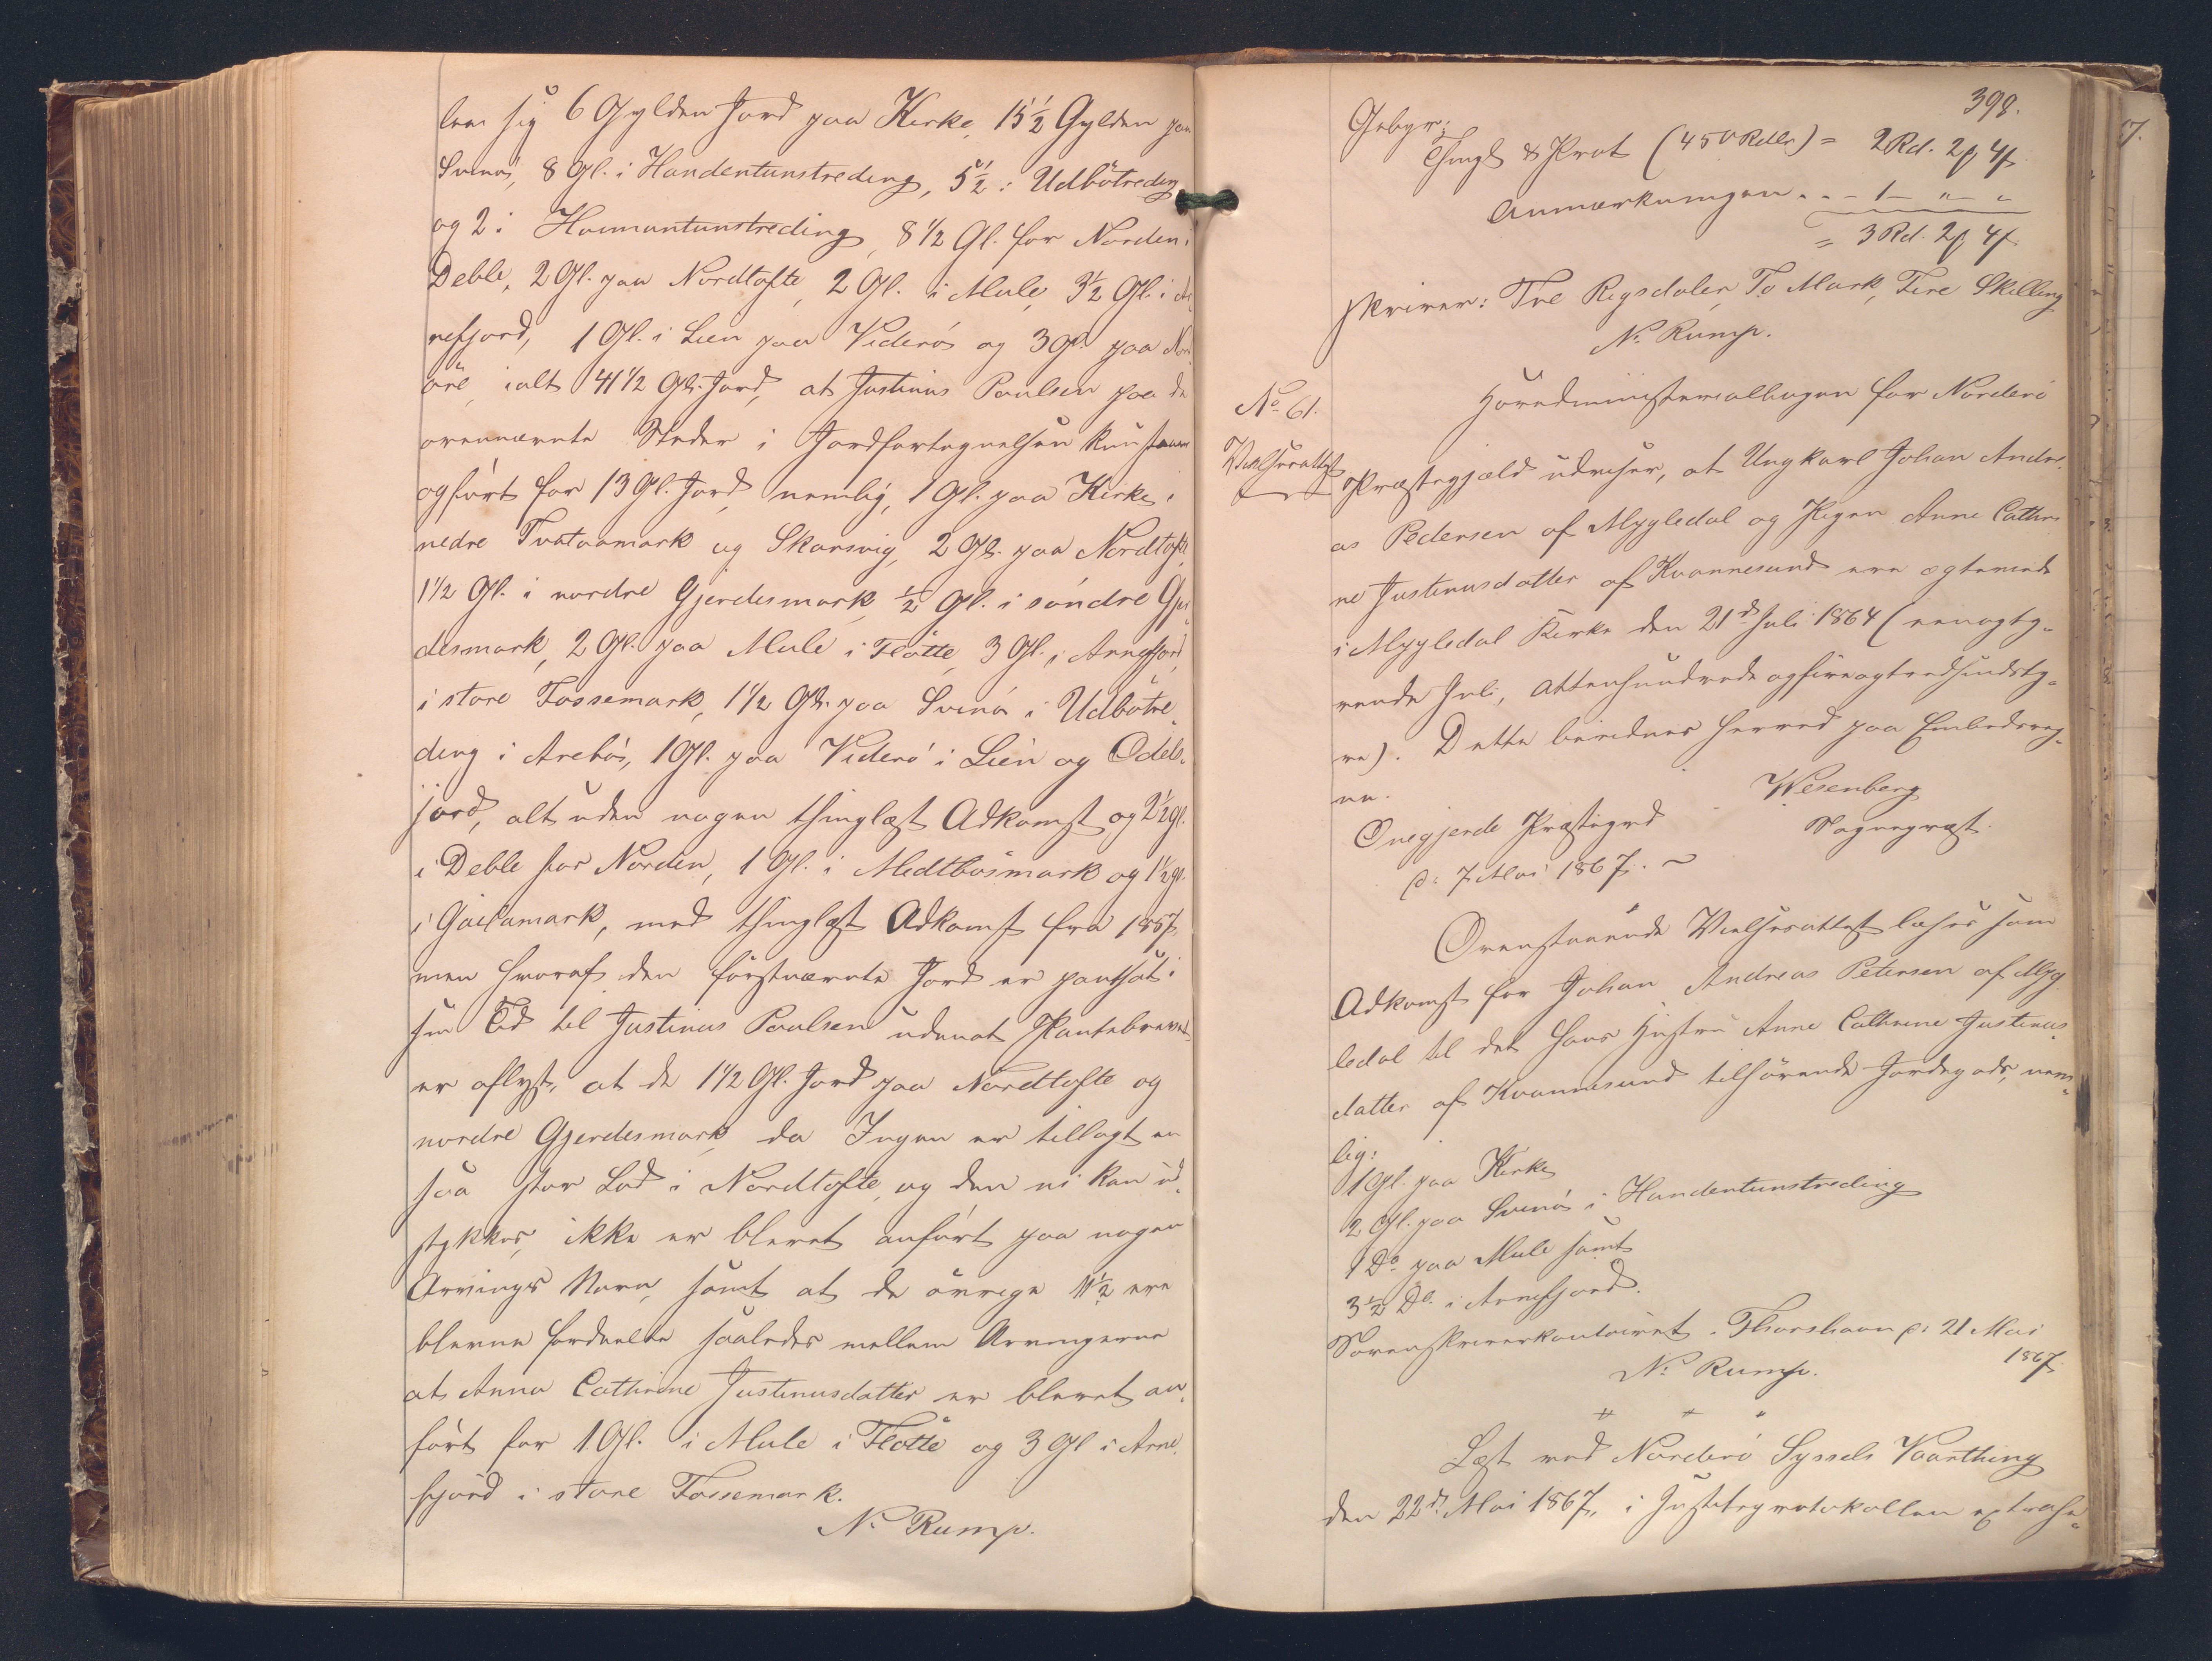 lem sig 6 Gylden Jord paa Kirke, 15 1/2 Gylden paa
Svinö, 8 Gl. i Handentunstreding, 5 1/2 i Udbötreding
og 2 i Heimuntunstreding, 8 1/2 Gl. for Norden i
Deble, 2 Gl. paa Nordtofte, 2 Gl. i Mule, 3 1/2 Gl. i Ar„
nefjord, 1 Gl. i Lien paa Viderö og 3 Gl. paa Nord„
öre, ialt 41 1/2 Gl. Jord, at Justinus Poulsen paa de
ovennævnte Steder i Jordfortegnelsen kun staaer
opført for 13 Gl. Jord, nemlig, 1 Gl. paa Kirke i
nedre Tvataamark og Skarsvig, 2 Gl. paa Nordtofte
1 1/2 Gl. i nordre Gjerdesmark, 1/2 Gl. i söndre Gjer„
desmark, 2 Gl. paa Mule i Flötte, 3 Gl. i Arnefjord
i store Fossemark, 1 1/2 Gl. paa Svinö i Udbötre„
ding i Arebö, 1 Gl. paa Viderö i Lien og Odels„
jord, alt uden nogen thinglæst Adkomst og 2 1/2 Gl.
i Deble for Norden, 1 Gl. i Medtbösmark og 1 1/2 Gl.
i Gailamark, med thinglæst Adkomst fra 1857,
men hvoraf den førstnævnte Jord er pantsat i
sin Tid til Justinus Poulsen udenat Pantebrevet
er aflyst, at de 1 1/2 Gl. Jord paa Nordtofte og
nordre Gjerdesmark, da Ingen er tillagt en
saa stor Lod i Nordtofte, og den ei kan ud„
stykkes, ikke er blevet anført paa nogen
Arvings Navn, samt at de øvrige 11 1/2 ere
blevne fordeelte saaledes mellem Arvingerne
at Anna Cathrine Justinusdatter er blevet an„
ført for 1 Gl. i Mule i Flötte og 3 Gl i Arne„
fjord i store Fossemark.
N. Rump.
398.
Gebyr:
Thingl. & Prot (450 Rdlr) = 2 Rd. 2 ß 4 ß
Anmærkningen . . - 1 - " - "
= 3 Rd. 2 ß 4 ß.
skriver: Tre Rigsdaler, To Mark, Fire Skilling
N. Rump.
No. 61.
Vielsesattest
Hovedministerialbogen for Norderö
Præstegjæld udviser, at Ungkarl Johan Andre„
as Pedersen af Mygledal og Pigen Anne Cathri
ne Justinusdatter af Kvannesund ere ægteviede
i Mygledal Kirke den 21d Juli 1864 (eenogty„
vende Juli, Attenhundrede og fireogtredsindsty„
ve). Dette bevidnes herved paa Embedsveg„
ne.
Wesenberg
Sognepræst.
Onegjerde Præstegrd
d: 7 Mai 1867. ~
Ovenstaaende Vielsesattest læses som
Adkomst for Johan Andreas Petersen af Myg
ledal til det hans Hustru Anne Cathrine Justinus
datter af Kvannesund tilhörende Jordegods, nem„
lig:
1 Gl. paa Kirke
2 Gl. paa Svinö i Handentunstreding
1 Do. paa Mule samt
3 1/2 Do. i Arnefjord.
Sorenskriverkontoiret. Thorshavn d: 21 Mai
1867
N. Rump.
Læst ved Norderö Syssels Vaarthing
den 22d. Mai 1867, i Justitsprotokollen extrahe„